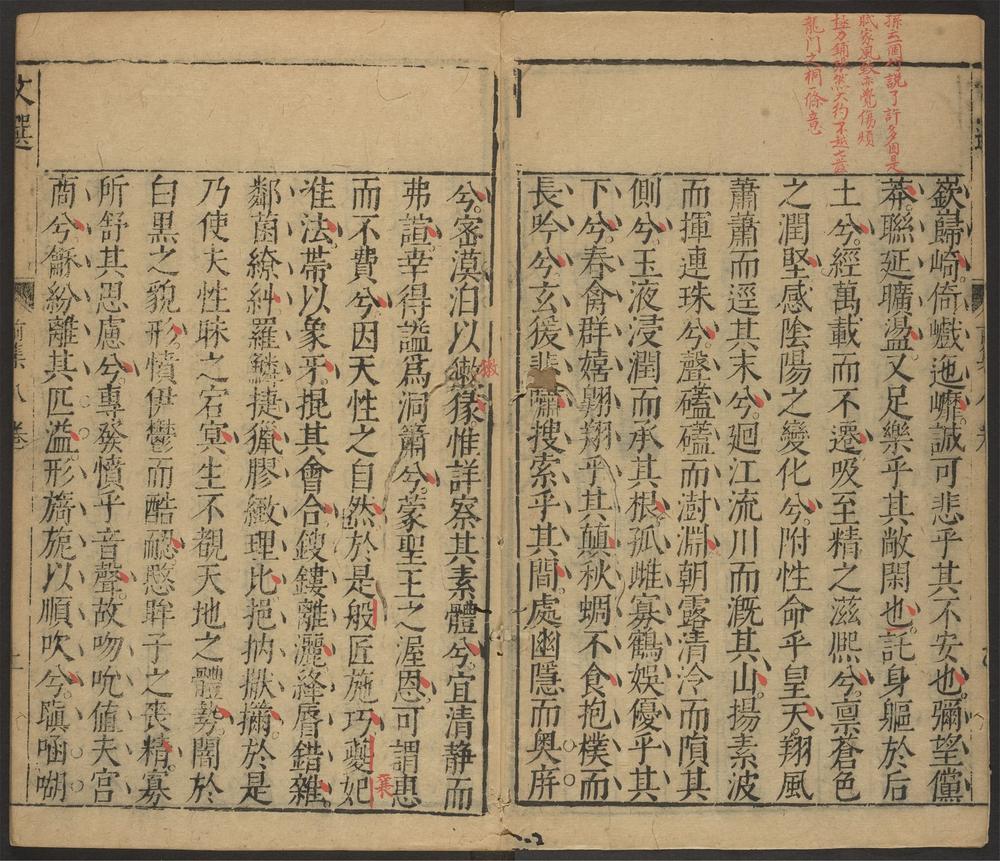 孫云一個竹說了許多自是
賦家風致亦覺傷煩
極力鋪張然大約不越七發
龍門之桐一條意
嶔巋崎倚巇迤㠧誠可悲乎其不安也彌望儻
莽聯延曠盪又足樂乎其敞閑也託身軀於后
土兮經萬載而不遷吸至精之滋熈兮禀蒼色
之潤堅感陰陽之變化兮附性命乎皇天翔風
蕭蕭而逕其末兮廻江流川而溉其山揚素波
而揮連珠兮聲礚礚而澍淵朝露清泠而隕其
側兮玉液浸潤而承其根孤雌寡鶴娛優乎其
下兮春禽群嬉翱翔乎其顛秋蜩不食抱樸而
長吟兮玄猨悲嘯搜索乎其間處幽隱而奥庰
文選
前集八卷
兮密漠泊以㺖猭惟詳察其素體兮宜清静而
弗諠幸得謚爲洞簫兮蒙聖王之渥恩可謂惠
而不費兮因天性之自然於是般匠施巧夔妃
准法帶以象牙掍其會合鎪鏤離灑絳脣錯雜
鄰菌繚糾羅鱗捷獵膠緻理比挹抐擫㩎於是
乃使夫性昧之宕冥生不覩天地之體勢闇於
白黒之貌形憤伊鬱而酷䎡愍眸子之喪精寡
所舒其思慮兮專發憤乎音聲故吻吮值夫宫
商兮龢紛離其匹溢形旖旎以順吹兮瞋㖤㗅